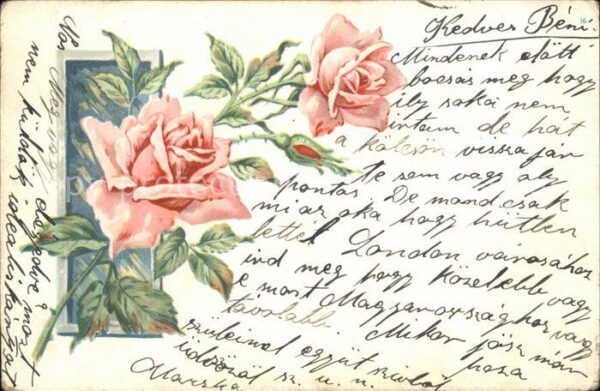 Kedves Béni.
Mindenek előtt
bocsás meg hogy
ily soká nem
írtam de hát
a kölcsön visszajár
te sem vagy oly
pontos. De mond csak
mi az oka hogy hűtlen
lettél London városához
ind meg vagy közelebb vagy
e most Magyarországhoz vagy
távolabb. Mikor jösz már
haza
szüleinel együt szivből
üdvözöl sz. u. n.
Mariska
Van
elégedve? most
nem küldök ideális kártyát